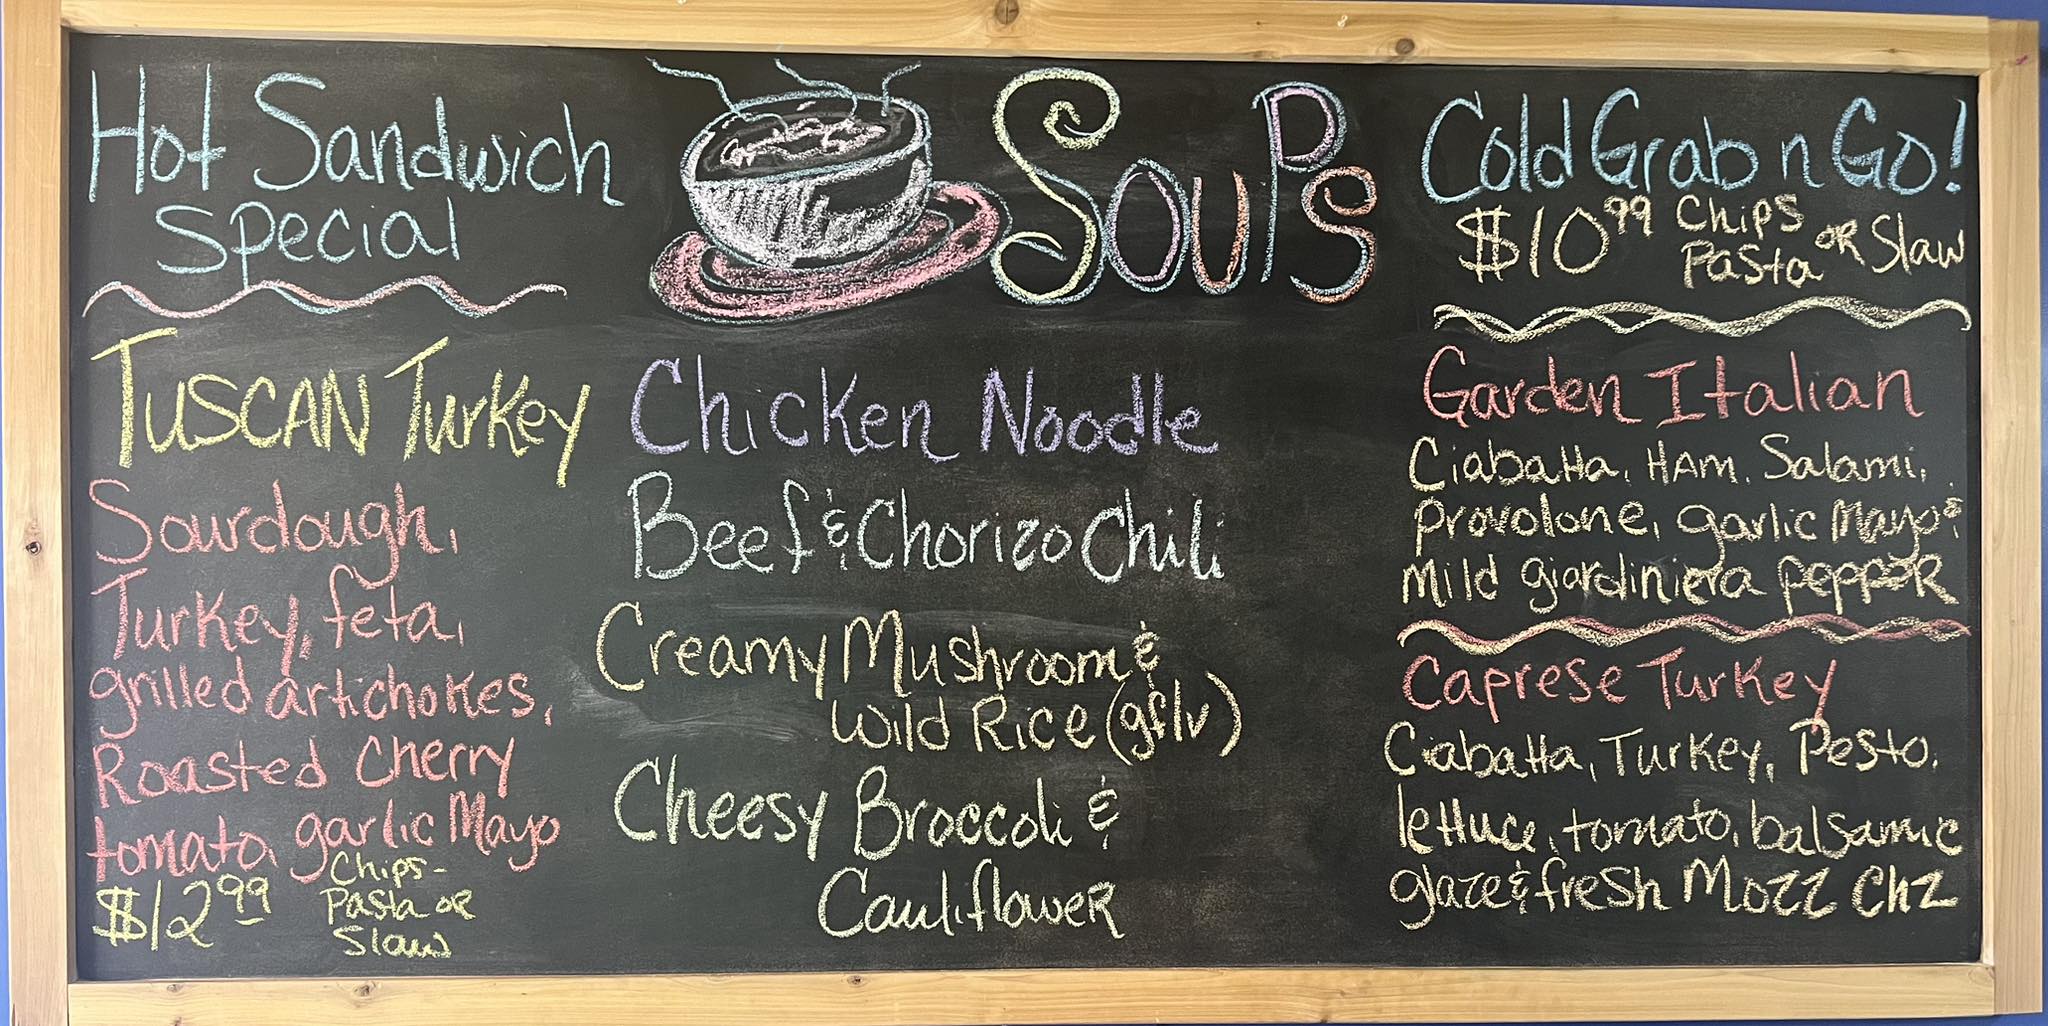 Hot Sandwich
Special
TUSCAN Turkey
Sourdough,
Turkey, feta,
grilled artichokes,
Roasted Cherry
tomato, garlic Mayo
$12.99
Chips-
Pasta or
Slaw
Soups
Chicken Noodle
Beef & Chorizo Chili
Creamy Mushroom &
Wild Rice (gf/v)
Cheesy Broccoli &
Cauliflower
Cold Grab n Go!
$10.99 Chips
Pasta OR Slaw
Garden Italian
Ciabatta, HAM, Salami,
Provolone, garlic Mayo &
Mild giardiniera pepper
Caprese Turkey
Ciabatta, Turkey, Pesto,
lettuce, tomato, balsamic
glaze & fresh Mozz Chz